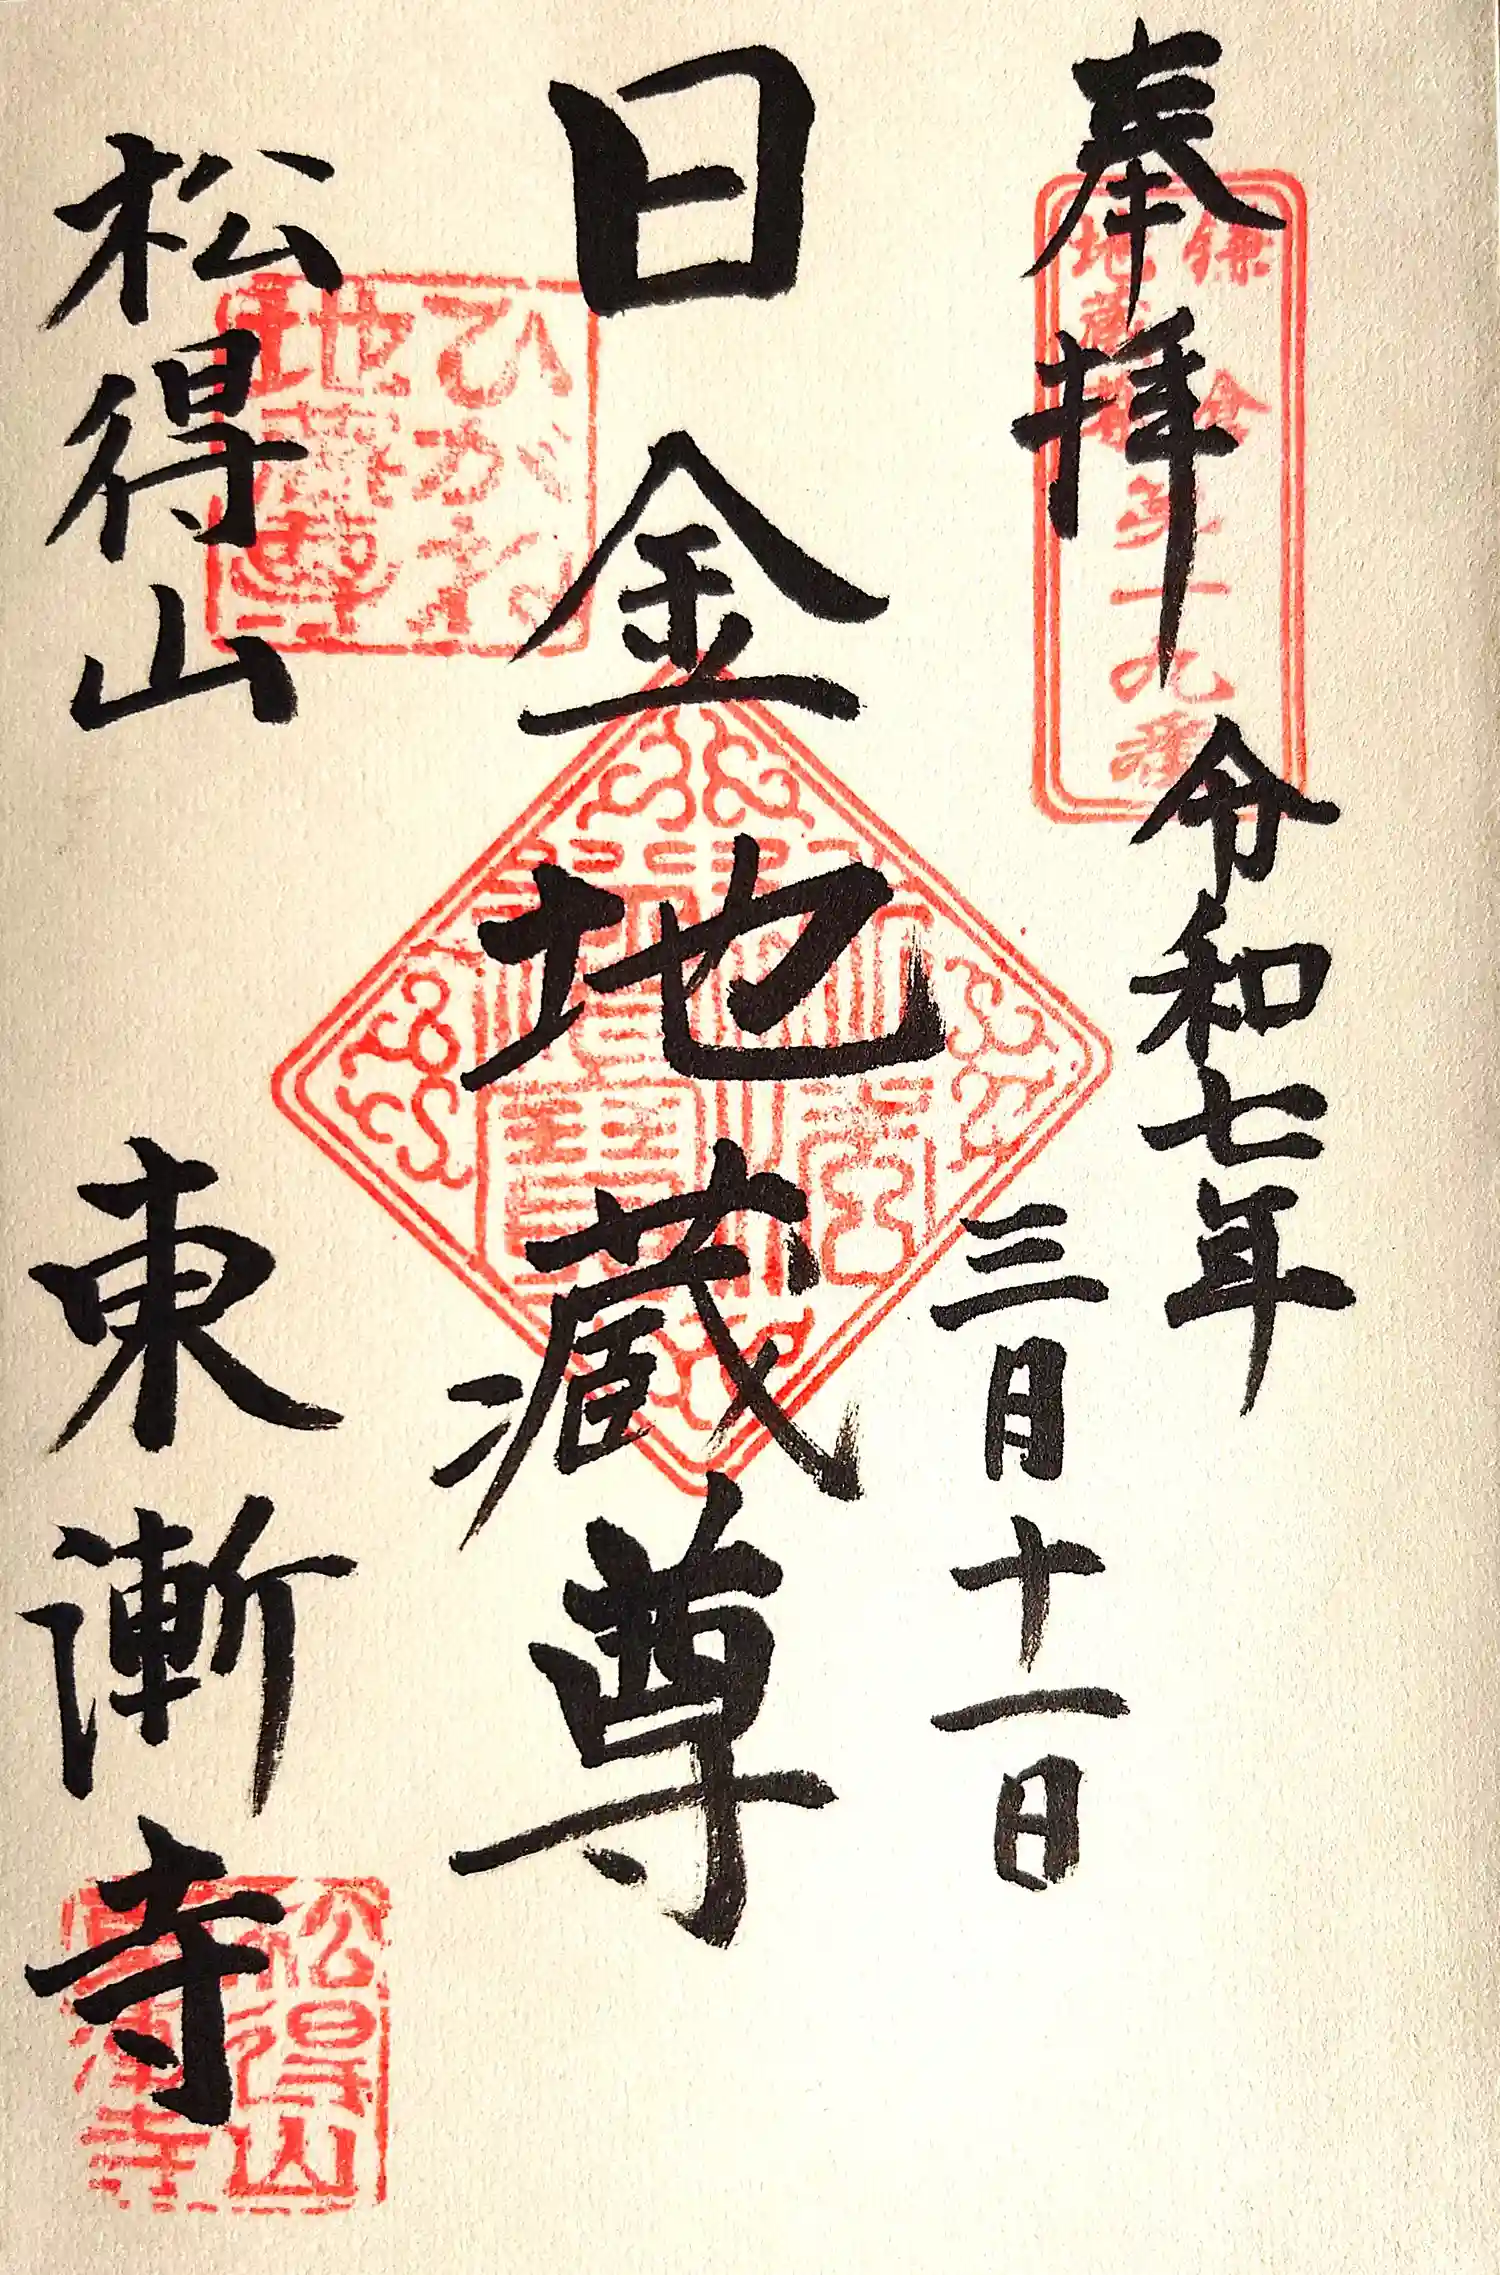 奉拝
令和七年
三月十一日
鎌倉
地蔵
第十九番
日金地蔵尊
ひがね
地蔵尊
松得山
東漸寺
松得山
東漸寺